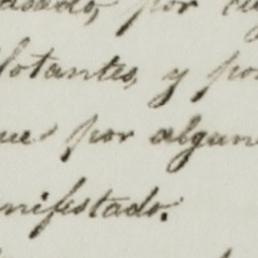 por
flotantes, y po
ue por algun
nifestado.